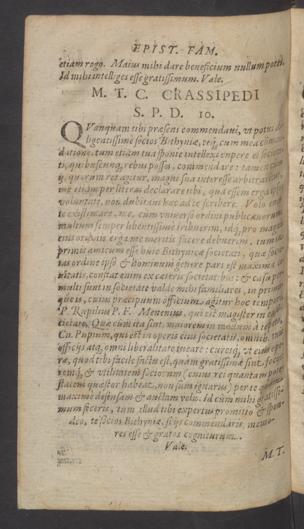 EPIST. FAM.
etiam rogo. Maius mihi dare beneficium nullum potes.
Id mihi intelliges esse gratissimum. Vale.
M. T. C. CRASSIPEDI
S. P. D. 10.
QVanquam tibi præsens commendaui, vt potui
ligentissime socios Bithyniæ, teq; cum mea
datione, tum etiam tua sponte intellexi cupere ei societa
ti, quibuscunq; rebus posses, commodare: tamen
ij, quorum res agatur, magni sua interesse
me etiam per literas declarare tibi, qua essem erga ipsos
voluntate, non dubitaui hæc ad te scribere. Volo enim
te existimare, me, cum vniuerso ordini publicanorum
multum semper libentissime tribuerim, idq; pro magnis
eius ordinis erga me meritis facere debuerim, tum in
primis amicum esse huic Bithynicæ societati, quæ
tas ordine ipso & hominum genere pars est maxima
uitatis, constat enim ex cæteris societatibus: & casu per
multi sunt in societate valde mihi familiares, in primis
que is, cuius præcipuum officium agitur hoc tempore
P. Rupilius P. F. Menenius, qui est magister in
cietate. Quæ cum ita sint, maiorem in modum à te peto,
Cn. Pupium, qui est in operis eius societatis, omnib. tuis
officijs atq; omni liberalitate tueare: curesq; vt eius
ræ, quod tibi facile factu est, quàm gratissimæ sint socijs
remq; & vtilitatem sociorum (cuius rei quantam potes
statem quæstor habeat, non sum ignarus) per te quàm
maxime defensam & auctam velis. Id cum mihi gratissi
mum feceris, tum illud tibi expertus promitto & spon-
deo, te socios Bithyniæ, si ijs commendaris, memo-
res esse & gratos cogniturum.
Vale.
M. T.